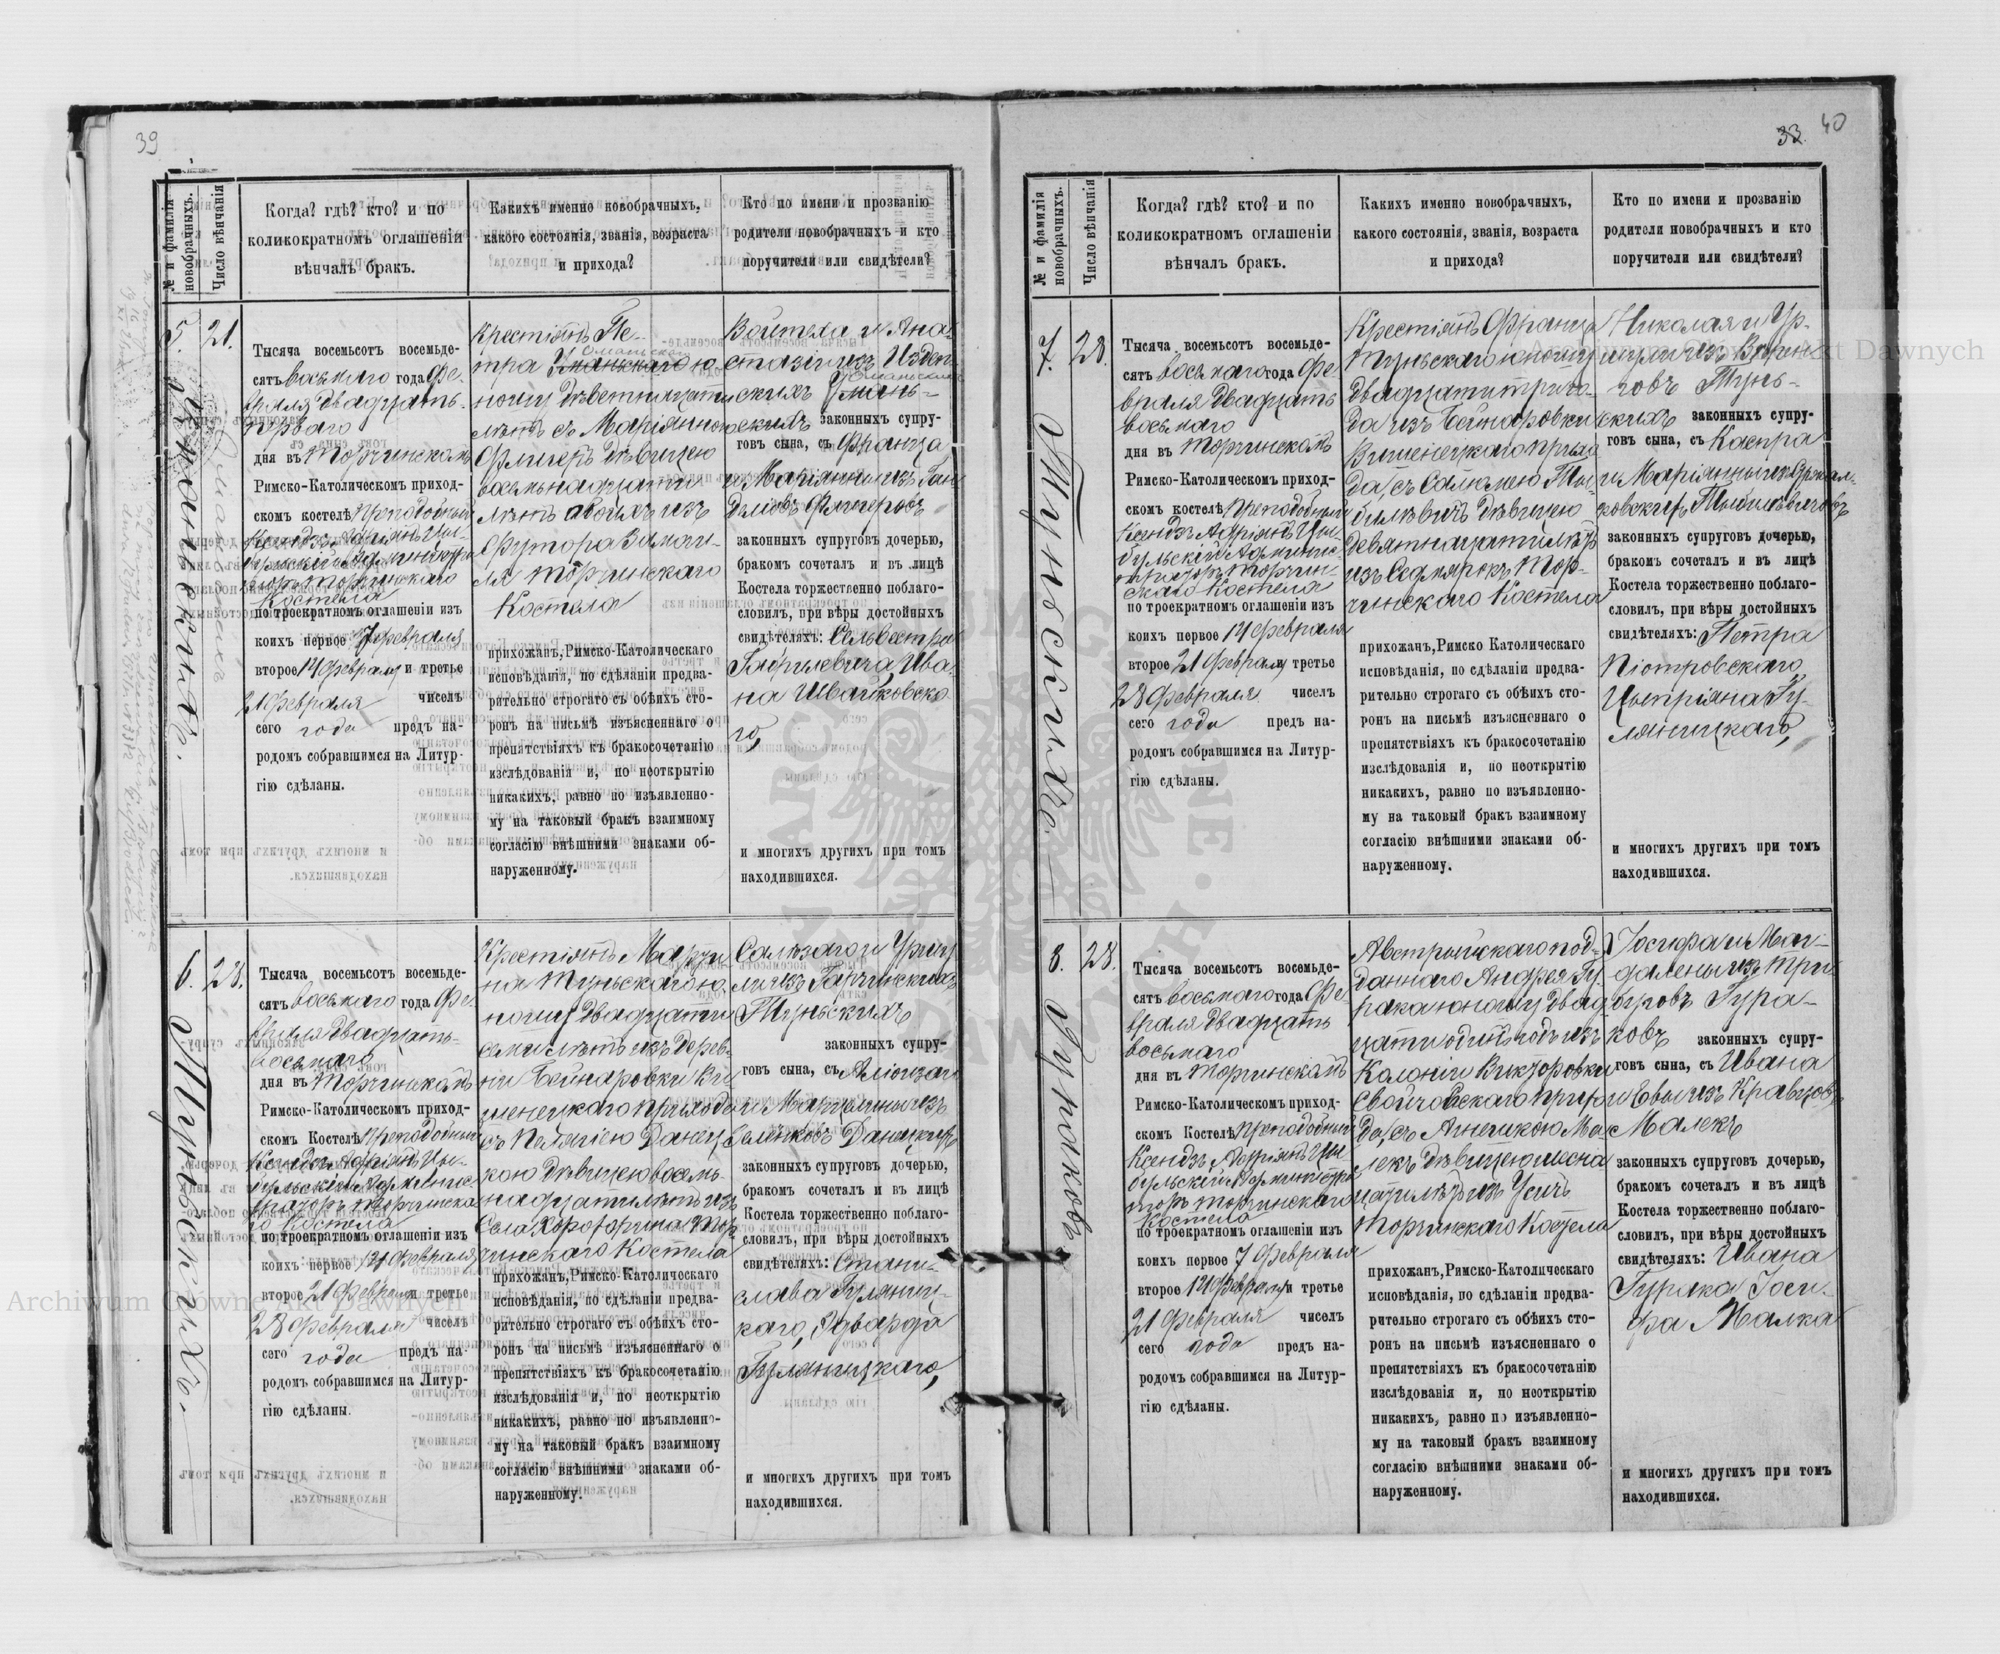 39
№ и фамилія новобрачныхъ.
Число вѣнчанія
Когда? гдѣ? кто? и по
коликократномъ оглашеніи
вѣнчалъ бракъ.
Какихъ именно новобрачныхъ,
какого состоянія, званія, возраста
и прихода?
Кто по имени и прозванію
родители новобрачныхъ и кто
поручители или свидѣтели?
5.
21.
Тысяча восемьсотъ восемьде-
сятъ восьмаго года Фе-
враля двадцать
перваго
дня въ Торчинскомъ
Римско-Католическомъ приход-
скомъ костелѣ Преподобный
Ксендзъ Адріянъ Цы-
бульскій Администра-
торъ Торчинскаго
Костела
по троекратномъ оглашеніи изъ
коихъ первое 7 февраля
второе 14 февраля и третье
21 февраля чиселъ
сего года предъ на-
родомъ собравшимся на Литур-
гію сдѣланы.
Крестіянъ Пе-
тра ю-
ношу девятнадцати
лѣтъ съ Маріянною
Флигеръ дѣвицею
восьмнадцати
лѣтъ обоихъ изъ
Футора
Торчинскаго
Костела
прихожанъ, Римско-Католическаго
исповѣданія, по сдѣланіи предва-
рительно строгаго съ обѣихъ сто-
ронъ на письмѣ изъясненнаго о
препятствіяхъ къ бракосочетанію
изслѣдованія и, по неоткрытію
никакихъ, равно по изъявленно-
му на таковый бракъ взаимному
согласію внѣшними знаками об-
наруженному.
Войтеха и Ана-
стазіи изъ
законныхъ супру-
говъ сына, съ Франца
и Маріянны изъ
Флигеровъ
законныхъ супруговъ дочерью,
бракомъ сочеталъ и въ лицѣ
Костела торжественно поблаго-
словилъ, при вѣры достойныхъ
свидѣтеляхъ: Сельвестра
Ива-
на Швайковска-
го,
и многихъ другихъ при томъ
находившихся.
6.
28.
Тунскихъ.
Тысяча восемьсотъ восемьде-
сятъ восьмаго года Фе-
враля двадцать
восьмаго
дня въ Торчинскомъ
Римско-Католическомъ приход-
скомъ Костелѣ Преподобный
Ксендзъ Адріянъ Цы-
бульскій Админис-
траторъ Торчинска-
го Костела
по троекратномъ оглашеніи изъ
коихъ первое 14 февраля
второе 21 февраля и третье
28 февраля чиселъ
сего года предъ на-
родомъ собравшимся на Литур-
гію сдѣланы.
Крестіянъ Марци-
на Туньскаго ю-
ношу двадцати
семи лѣтъ изъ дерев-
ни Бейнаровки Ви-
шенецкаго прихода
съ Пелягіею Данец-
кою дѣвицею восемь-
надцати лѣтъ изъ
села Хорохорина Тор-
чинскаго Костела
прихожанъ, Римско-Католическаго
исповѣданія, по сдѣланіи предва-
рительно строгаго съ обѣихъ сто-
ронъ на письмѣ изъясненнаго о
препятствіяхъ къ бракосочетанію
изслѣдованія и, по неоткрытію
никакихъ, равно по изъявленно-
му на таковый бракъ взаимному
согласію внѣшними знаками об-
наруженному.
Туньскихъ
законныхъ супру-
говъ сына, съ
законныхъ супруговъ дочерью,
бракомъ сочеталъ и въ лицѣ
Костела торжественно поблаго-
словилъ, при вѣры достойныхъ
свидѣтеляхъ: Стани-
слава Гуляниц-
каго, Эдварда
Гуляницкаго,
и многихъ другихъ при томъ
находившихся.
33
40
№ и фамилія новобрачныхъ.
Число вѣнчанія
Когда? гдѣ? кто? и по
коликократномъ оглашеніи
вѣнчалъ бракъ.
Какихъ именно новобрачныхъ,
какого состоянія, званія, возраста
и прихода?
Кто по имени и прозванію
родители новобрачныхъ и кто
поручители или свидѣтели?
7.
28.
Туньскихъ
Тысяча восемьсотъ восемьде-
сятъ восьмаго года Фе-
враля двадцать
восьмаго
дня въ Торчинскомъ
Римско-Католическомъ приход-
скомъ костелѣ Преподобный
Ксендзъ Адріянъ Цы-
бульскій Админис-
траторъ Торчин-
скаго Костела
по троекратномъ оглашеніи изъ
коихъ первое 14 февраля
второе 21 февраля и третье
28 февраля чиселъ
сего года предъ на-
родомъ собравшимся на Литур-
гію сдѣланы.
Крестіянъ Франца
Туньскаго юношу
двадцати три го-
да изъ Бейнаровки
Вишенецкаго прихо-
да, съ Салюмею Ты-
билѣвичъ дѣвицею
девятнацати лѣтъ
изъ Седмярокъ Тор-
чинского Костела
прихожанъ, Римско Католическаго
исповѣданія, по сдѣланіи предва-
рительно строгаго съ обѣихъ сто-
ронъ на письмѣ изъясненнаго о
препятствіяхъ къ бракосочетанію
изслѣдованія и, по неоткрытію
никакихъ, равно по изъявленно-
му на таковый бракъ взаимному
согласію внѣшними знаками об-
наруженному.
Николая и Ур-
шули изъ
Тунь-
скихъ законныхъ супру-
говъ сына, съ Каспра
и Маріянны изъ
законныхъ супруговъ дочерью,
бракомъ сочеталъ и въ лицѣ
Костела торжественно поблаго-
словилъ, при вѣры достойныхъ
свидѣтеляхъ: Петра
Піотровскаго,
Цыпріяна Гу-
ляницкаго,
и многихъ другихъ при томъ
находившихся.
8.
28.
Гураковъ
Тысяча восемьсотъ восемьде-
сятъ восьмаго года Фе-
враля двадцать
восьмаго
дня въ Торчинскомъ
Римско-Католическомъ приход-
скомъ Костелѣ Преподобный
Ксендзъ Адріянъ Цы-
бульскій Администра-
торъ Торчинскаго
Костела
по троекратномъ оглашеніи изъ
коихъ первое 7 февраля
второе 14 февраля и третье
21 февраля чиселъ
сего года предъ на-
родомъ собравшимся на Литур-
гію сдѣланы.
Австрыйскаго под-
даннаго Андрея Гу-
рака юношу двад-
цати одинъ годъ изъ
Колоніи Викторовки
Свойчовскаго прихо-
да, съ Агнешкою Ма-
лекъ дѣвицею шесна-
цати лѣтъ изъ Усичъ
Торчинскаго Костела
прихожанъ, Римско-Католическаго
исповѣданія, по сдѣланіи предва-
рительно строгаго съ обѣихъ сто-
ронъ на письмѣ изъясненнаго о
препятствіяхъ къ бракосочетанію
изслѣдованія и, по неоткрытію
никакихъ, равно по изъявленно-
му на таковый бракъ взаимному
согласію внѣшними знаками об-
наруженному.
Іосифа и Маг-
далены изъ
Гура-
ковъ законныхъ супру-
говъ сына, съ Ивана
и Евы изъ Кравцовъ
Малекъ
законныхъ супруговъ дочерью,
бракомъ сочеталъ и въ лицѣ
Костела торжественно поблаго-
словилъ, при вѣры достойныхъ
свидѣтеляхъ: Ивана
Гурака Іоси-
фа Малка
и многихъ другихъ при томъ
находившихся.
Archiwum Główne Akt Dawnych